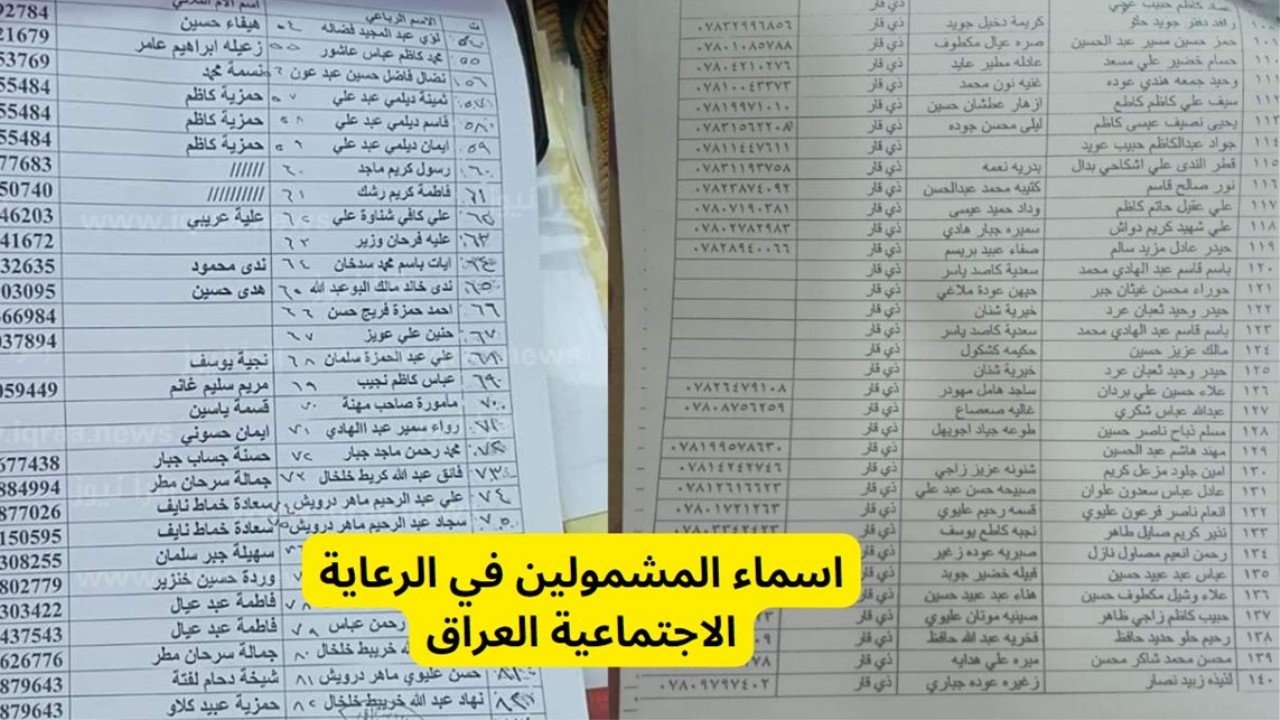 كاظم حبيب عوني ذي قار
جويد حلو كريمة دخيل جويد ذي قار ٠٧٨٣٢٩٩٦٨٥٦
١٠٩ حمز حسين مسير عبد الحسين صره عيال مكطوف ذي قار ٠٧٨٠١٠٨٥٧٨٨
١١٠ حسام خضير علي مسعد عادله مطير عايد ذي قار ٠٧٨٠٤٢١٠٢٧٦
١١١ وحيد جمعه هندي عوده غنيه نون محمد ذي قار ٠٧٨١٠٠٤٣٣٧٣
١١٢ سيف علي كاظم كاطع ازهار عطشان حسين ذي قار ٠٧٨١٩٩٧١٠١٠
١١٣ يحيى نصيف عيسى كاظم ليلى محسن جوده ذي قار ٠٧٨٣١٥٦٢٢٠٨
١١٤ جواد عبدالكاظم حبيب عويد ذي قار ٠٧٨١١٤٤٧٦١١
١١٥ قطر الندى علي اشكاحي بدال بدريه نعمه ذي قار ٠٧٨٣١١٩٣٧٥٨
١١٦ نور صالح قاسم كتيبه محمد عبدالحسن ذي قار ٠٧٨٢٣٨٧٤٠٩٢
١١٧ علي عقيل حاتم كاظم وداد حميد عيسى ذي قار ٠٧٨٠٧١٩٠٣٨١
١١٨ علي شهيد كريم دواش سميره جبار هادي ذي قار ٠٧٨٠٢٧٨٢٩٨٣
١١٩ حيدر عادل مزيد سالم صفاء عبيد بريسم ذي قار ٠٧٨٢٨٩٤٠٠٦٦
١٢٠ باسم قاسم عبد الهادي محمد سعدية كاصد ياسر ذي قار
١٢١ حوراء محسن غيثان جبر جيهن عودة ملاغي ذي قار
١٢٢ حيدر وحيد ثعبان عرد خيرية شنان ذي قار
١٢٣ باسم قاسم عبد الهادي محمد سعدية كاصد ياسر ذي قار
١٢٤ مالك عزيز حسين حكيمه كشكول ذي قار
١٢٥ حيدر وحيد ثعبان عرد خيرية شنان ذي قار
١٢٦ علاء حسين علي بردان ساجد هامل مهودر ذي قار ٠٧٨٢٦٤٧٩١٠٨
١٢٧ عبدالله عباس شكري غاليه صعصاع ذي قار ٠٧٨٠٨٧٥٦٢٥٩
١٢٨ مسلم ذباح ناصر حسين طوعه جياد اجويهل ذي قار
١٢٩ مهند هاشم عبد الحسين ذي قار ٠٧٨١٩٩٥٧٨٦٣٠
١٣٠ امين جلود مزعل كريم شنونه عزيز زاجي ذي قار ٠٧٨١٤٢٤٢٧٤٦
١٣١ عادل عباس سعدون علوان صبيحه حسن عبد علي ذي قار ٠٧٨١٢٦١٦٦٢٣
١٣٢ انعام ناصر فرعون عليوي قسمه رحيم عليوي ذي قار ٠٧٨٠١٧٢١٢٦٣
١٣٣ نذير كريم صايل طاهر نجبه كاطع يوسف ذي قار ٠٧٨٠٣٣٤٢٤٢٣
١٣٤ رحمن انعيم مصاول نازل صبريه عوده زغير ذي قار
١٣٥ عباس عبد عبيد حسين قبيله خضير جويد
١٣٦ علاء وشيل مكطوف حسين هناء عبد عبيد حسين
١٣٧ حبيب كاظم زاجي ظاهر صينيه موتان عليوي
١٣٨ رحيم حلو حديد حافظ فخريه عبد الله حافظ ذي قار
١٣٩ محسن محمد شاكر محسن ميره علي هدايه ذي قار
١٤٠ لذيذه زبيد نصار زغيره عوده جباري ذي قار ٠٧٨٠٩٧٩٧٤٠٢
ت الاسم الرباعي اسم الام الثلاثي
٥٤ لؤي عبد المجيد فضاله هيفاء حسين
٥٥ محمد كاظم عباس عاشور زعيله ابراهيم عامر
٥٦ نضال فاضل حسين عبد عون نسمة محمد
٥٧ ثمينة ديلمي عبد علي حمزية كاظم
٥٨ قاسم ديلمي عبد علي حمزية كاظم
٥٩ ايمان ديلمي عبد علي حمزية كاظم
٦٠ رسول كريم ماجد //////
٦١ فاطمة كريم رشك //////////
علي كافي شناوة علي علية عريبي 46203
٦٣ عليه فرحان وزير 41672
٦٤ ايات باسم محمد سدخان ندى محمود 32635
٦٥ ندى خالد مالك البوعبد الله هدى حسين 03095
٦٦ احمد حمزة فريج حسن 66984
٦٧ حنين علي عويز 037894
٦٨ علي عبد الحمزة سلمان نجية يوسف
٦٩ عباس كاظم نجيب مريم سليم غانم 059449
٧٠ مامورة صاحب مهنة قسمة ياسين
٧١ رواء سمير عبد االهادي ايمان حسوني
٧٢ محمد رحمن ماجد جبار حسنة جساب جبار 677438
٧٣ فانق عبد الله كريط خلخال جمالة سرحان مطر 884994
٧٤ علي عبد الرحيم ماهر درويش سعادة خماط نايف 877026
٧٥ سجاد عبد الرحيم ماهر درويش سعادة خماط نايف 150595
سهيلة جبر سلمان 308255
وردة حسين خنزير 802779
٧٨ فاطمة عبد عيال 303422
٧٩ رحمن عباس فاطمة عبد عيال 437543
٨٠ خريبط خلخال جمالة سرحان مطر 626776
٨١ حسن عليوي ماهر درويش شيخة دحام لفتة 879643
٨٢ نهاد عبد الله خريبط خلخال حمزية عبيد كلاو 879643
اسماء المشمولين في الرعاية
الاجتماعية العراق